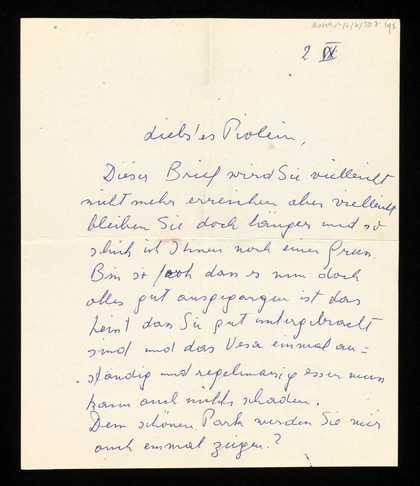 2 IX
Dieser Brief wird Sie vielleicht
nicht mehr erreichen aber vielleicht
bleiben Sie doch länger und so
schick ich Ihnen noch einen Gruss.
Bin so froh dass es nun doch
alles gut ausgegangen ist das
heist dass Sie gut untergebracht
sind und das Vera einmal an=
ständig und regelmässig essen muss
kann auch nichts schaden.
Den schönen Park werden Sie mir
auch einmal zeigen?